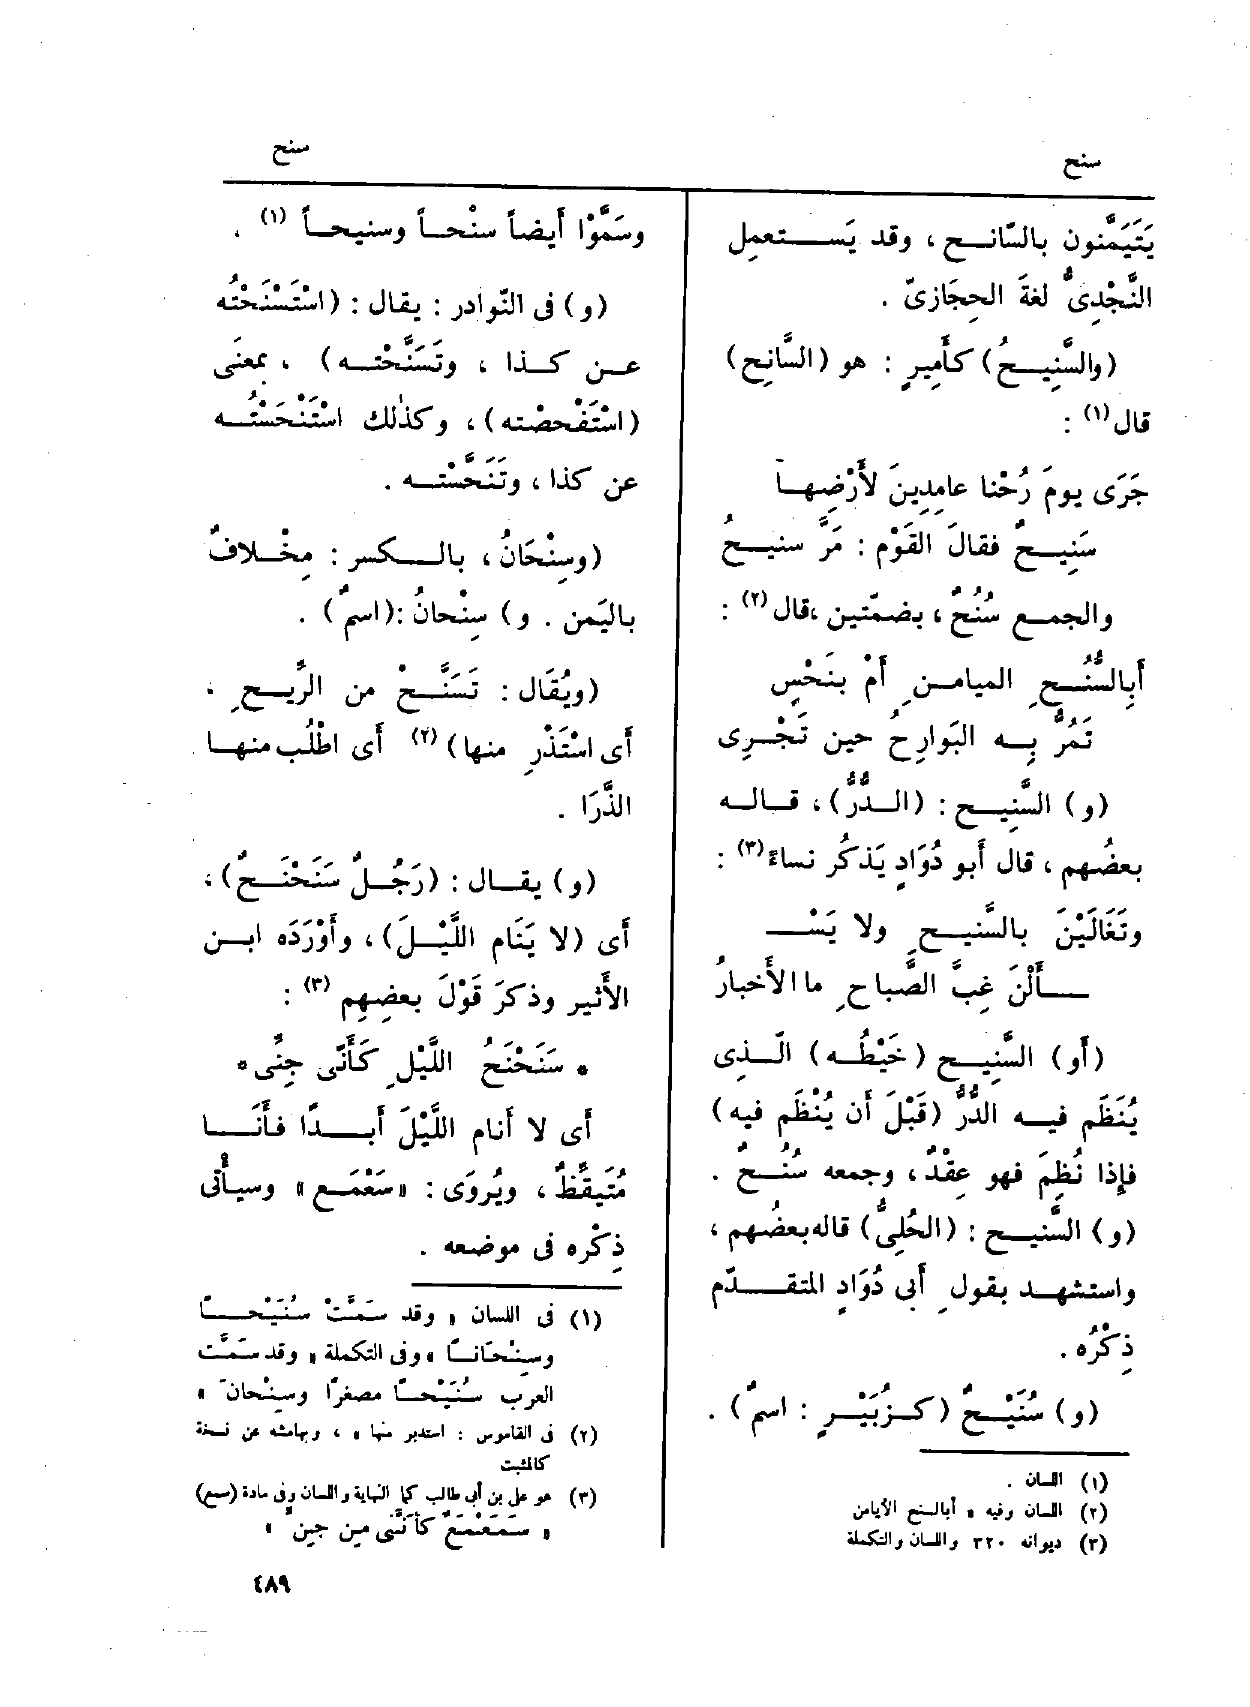 سنح
يَتَيَمَّنون بالسّانِح ، وقد يَستعمِل
النَّجْدِىُّ لغةَ الحِجَازىّ .
(والسَّنِيحُ) كأَمِيرٍ : هو (السَّانِح)
قال (١) :
جَرَى يومَ رُحْنا عامِدِينَ لأَرْضِها
سَنِيحٌ فقالَ القَوْم : مَرَّ سنيحُ
والجمع سُنُحٌ ، بضمّتين ،قال (٢) :
أَبِالسُّنُحِ الميامنِ أَمْ بنَحْسٍ
تَمُرُّ بِه البَوارِحُ حين تَجْرِى
(و) السَّنِيح : (الدُّرُّ) ، قاله
بعضُهم ، قال أَبو دُوَادٍ يَذكُر نساءً (٣) :
وتَغَالَيْنَ بالسَّنيحِ ولا يَسْ
أَلْنَ غِبَّ الصَّباحِ ما الأَخبارُ
(أَو) السَّنِيح (خَيْطُه) الّذِى
يُنَظَم فيه الدُّرُّ (قَبْلَ أَن يُنْظَم فيه)
فإِذا نُظِمَ فهو عِقْدٌ ، وجمعه سُنُحٌ .
(و) السَّنيح : (الحُلِىُّ) قاله بعضُهم ،
واستشهد بقولِ أَبى دُوَادٍ المتقدّم
ذِكْرُه .
(و) سُنَيْحٌ (كزُبَيْرٍ : اسمٌ) .
(١) اللسان .
(٢) اللسان وفيه « أبالسنح الأيامن
(٣) ديوانه ٣٢٠ واللسان والتكملة
سنح
وسَمَّوْا أَيضاً سنْحاً وسنيحاً (١) .
(و) فى النّوادر : يقال : (اسْتَسْنَحْتُه
عن كذا ، وتَسَنَّحْته) ، بمعنَى
(اسْتَفْحصْته) ، وكذٰلك اسْتَنْحَسْتُه
عن كذا ، وتَنَحَّسْته .
(وسِنْحَانُ ، بالكسر : مِخْلافٌ
باليَمن . و) سِنْحانُ :(اسمٌ) .
(ويُقَال : تَسَنَّحْ من الرِّيحِ ،
أَى اسْتَذْرِ منها) (٢) أَى اطْلُب منها
الذَّرَا .
(و) يقال : (رَجُلٌ سَنَحْنَحٌ) ،
أَى (لا يَنَام اللَّيْلَ) ، وأَوْرَدَه ابن
الأَثير وذكرَ قَوْلَ بعضِهم (٣) :
* سَنَحْنَحُ اللَّيْلِ كَأَنّى جِنِّى *
أَى لا أَنام اللَّيْلَ أَبدًا فأَنا
مُتَيقِّظٌ ، ويُروَى : «سَعْمَع» وسيأْتى
ذِكْره فى موضعه .
(١) فى اللسان « وقد سَمَّتْ سُنَيْحاً
وسِنْحَاناً » وفى التكملة « وقد سمَّت
العرب سُنَيْحاً مصغرا وسِنْحان »
(٢) فى القاموس : استدبر منها » ، وبهامشه عن نسخة
كالمثبت
(٣) هو على بن أبى طالب كما النهاية واللسان وفى مادة (سمع)
« سَمَعْمَعٌ كأنَّنى مِن جِنِّ »
٤٨٩